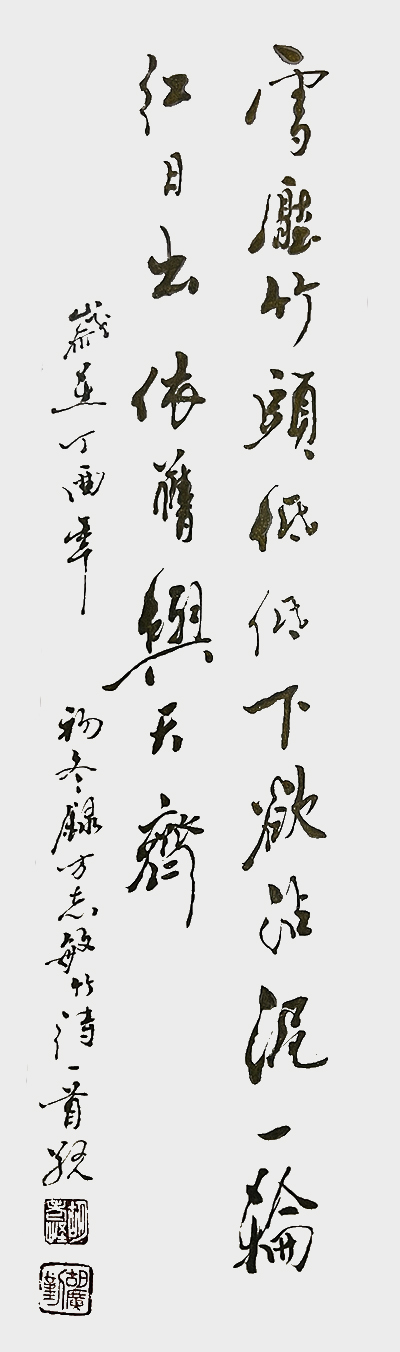 雪壓竹頭低低下欲沾泥一輪
紅日出依舊與天齊
歲在丁酉年初冬錄方志敏竹詩一首